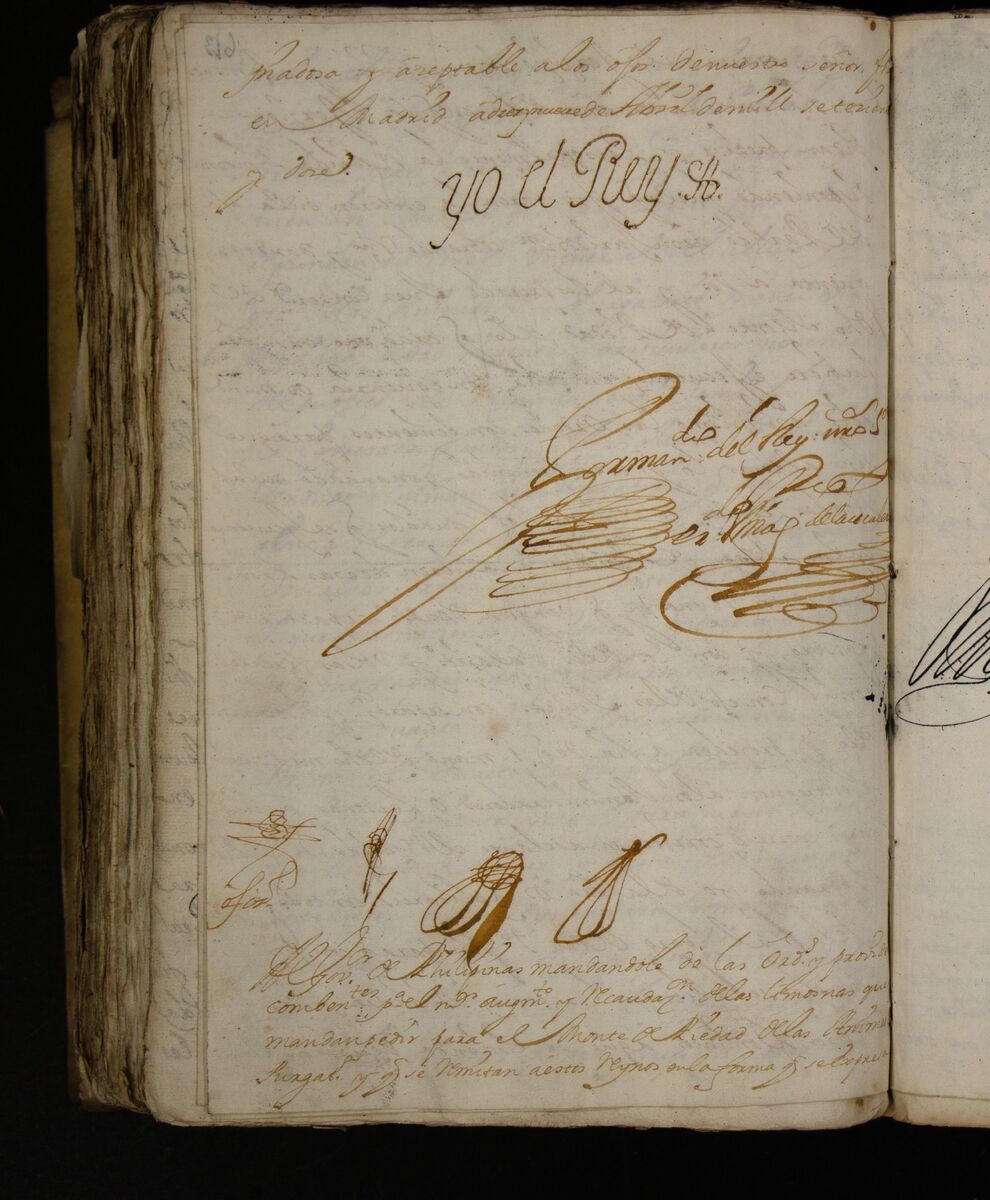 piadosa y aceptable a los ojos de nuestro señor. fha
en Madrid a diez y nueve de Abril de mill setecien
y doze.
yo el Rey
Por mandº del Rey nrō Sr
de la
ofizº
Al Govor de Philipinas mandandole de las Ordˢ y provid
combentes pª el augmto y Recaudazn de las limosnas que
mandan pedir para el Monte de Piedad de las Animas
Purgatº y q se Remitan a estos Reynos en la forma q se expresa